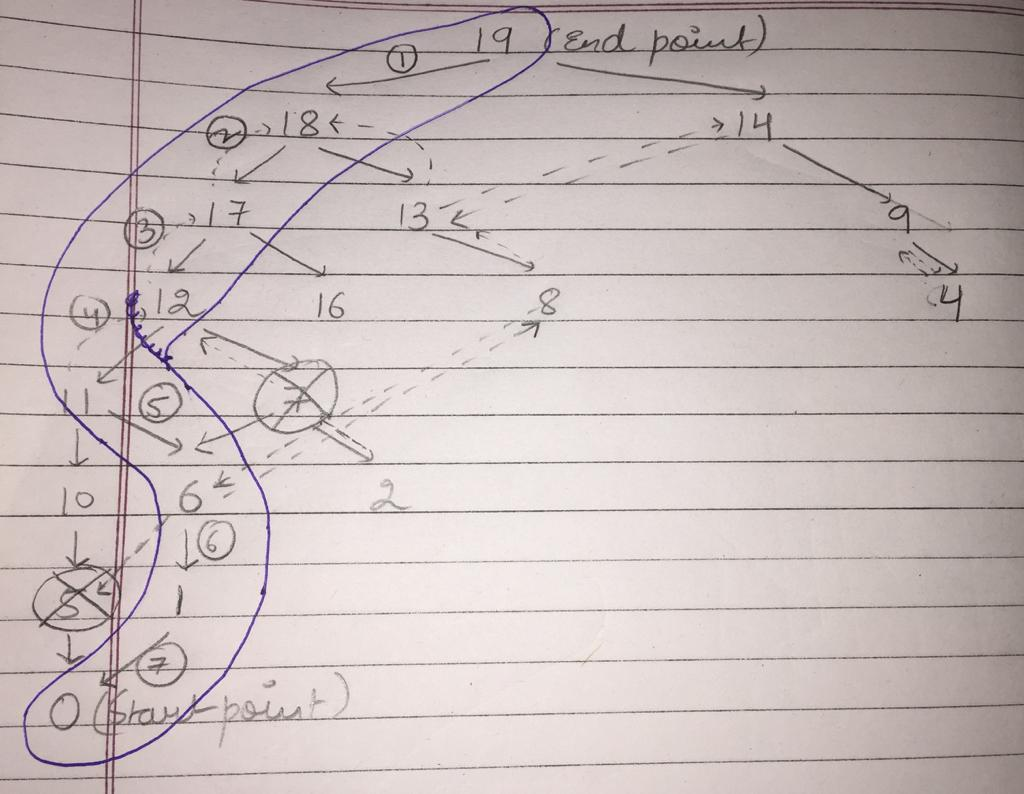 ① 19 (End point)
② 18 14
③ 17 13 9
④ 12 16 8 4
11 ⑤ 7
10 6 2
⑥
5 1
⑦
0 (Start point)